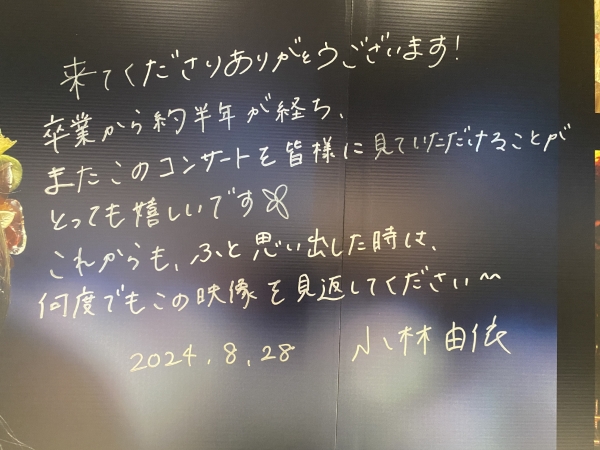 来てくださりありがとうございます!
卒業から約半年が経ち、
またこのコンサートを皆様に見ていただけることが
とっても嬉しいです
これからも、ふと思い出した時は、
何度でもこの映像を見返してください〜
2024.8.28 小林由依